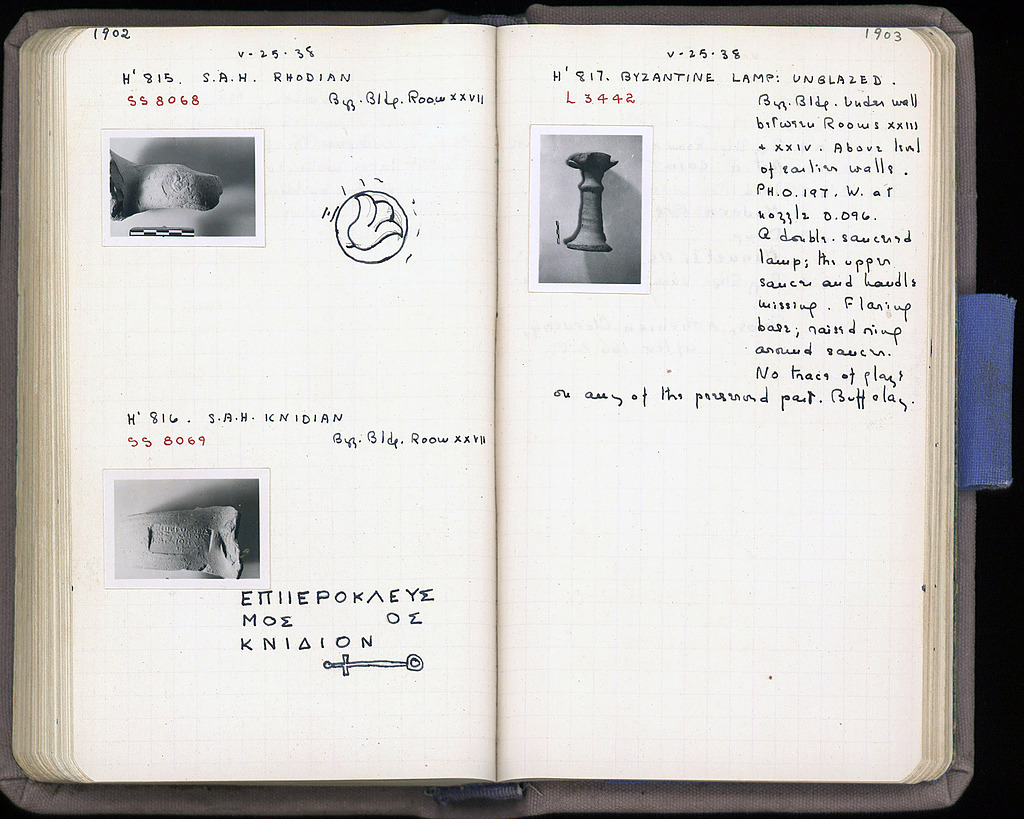 1902
V-25-38
H' 815. S.A.H. RHODIAN
SS 8068 Byz. Bldg. Room XXVII
H' 816. S.A.H. KNIDIAN
SS 8069 Byz. Bldg. Room XXVII
ΕΠΙΙΕΡΟΚΛΕΥΣ
ΜΟΣ ΟΣ
ΚΝΙΔΙΟΝ
1903
V-25-38
H' 817. BYZANTINE LAMP: UNGLAZED.
L 3442 Byz. Bldg. Under wall
between Rooms XXIII
+ XXIV. Above level
of earlier walls.
PH. 0.197. W. at
nozzle 0.096.
A double-saucered
lamp; the upper
saucer and handle
missing. Flaring
base; raised ring
around saucer.
No trace of glaze
on any of the preserved part. Buff clay.